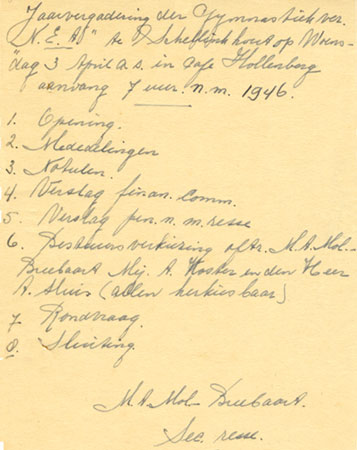 Jaarvergadering der Gymnastiekver.
"N.E.A.S" te Schellinkhout op Woens-
dag 3 April a.s. in Cafe Hollenberg
aanvang 7 uur. n.m. 1946.
1. Opening.
2. Mededelingen
3. Notulen.
4. Verslag finan. comm.
5. Verslag pen.n.m.resse
6. Bestuursverkiezing aftr. M.A. Mol-
Breebaart Mej. A. Koster en den Heer
A. Sluis (allen herkiesbaar)
7. Rondvraag.
8. Sluiting.
M.A. Mol- Breebaart.
Sec. resse.